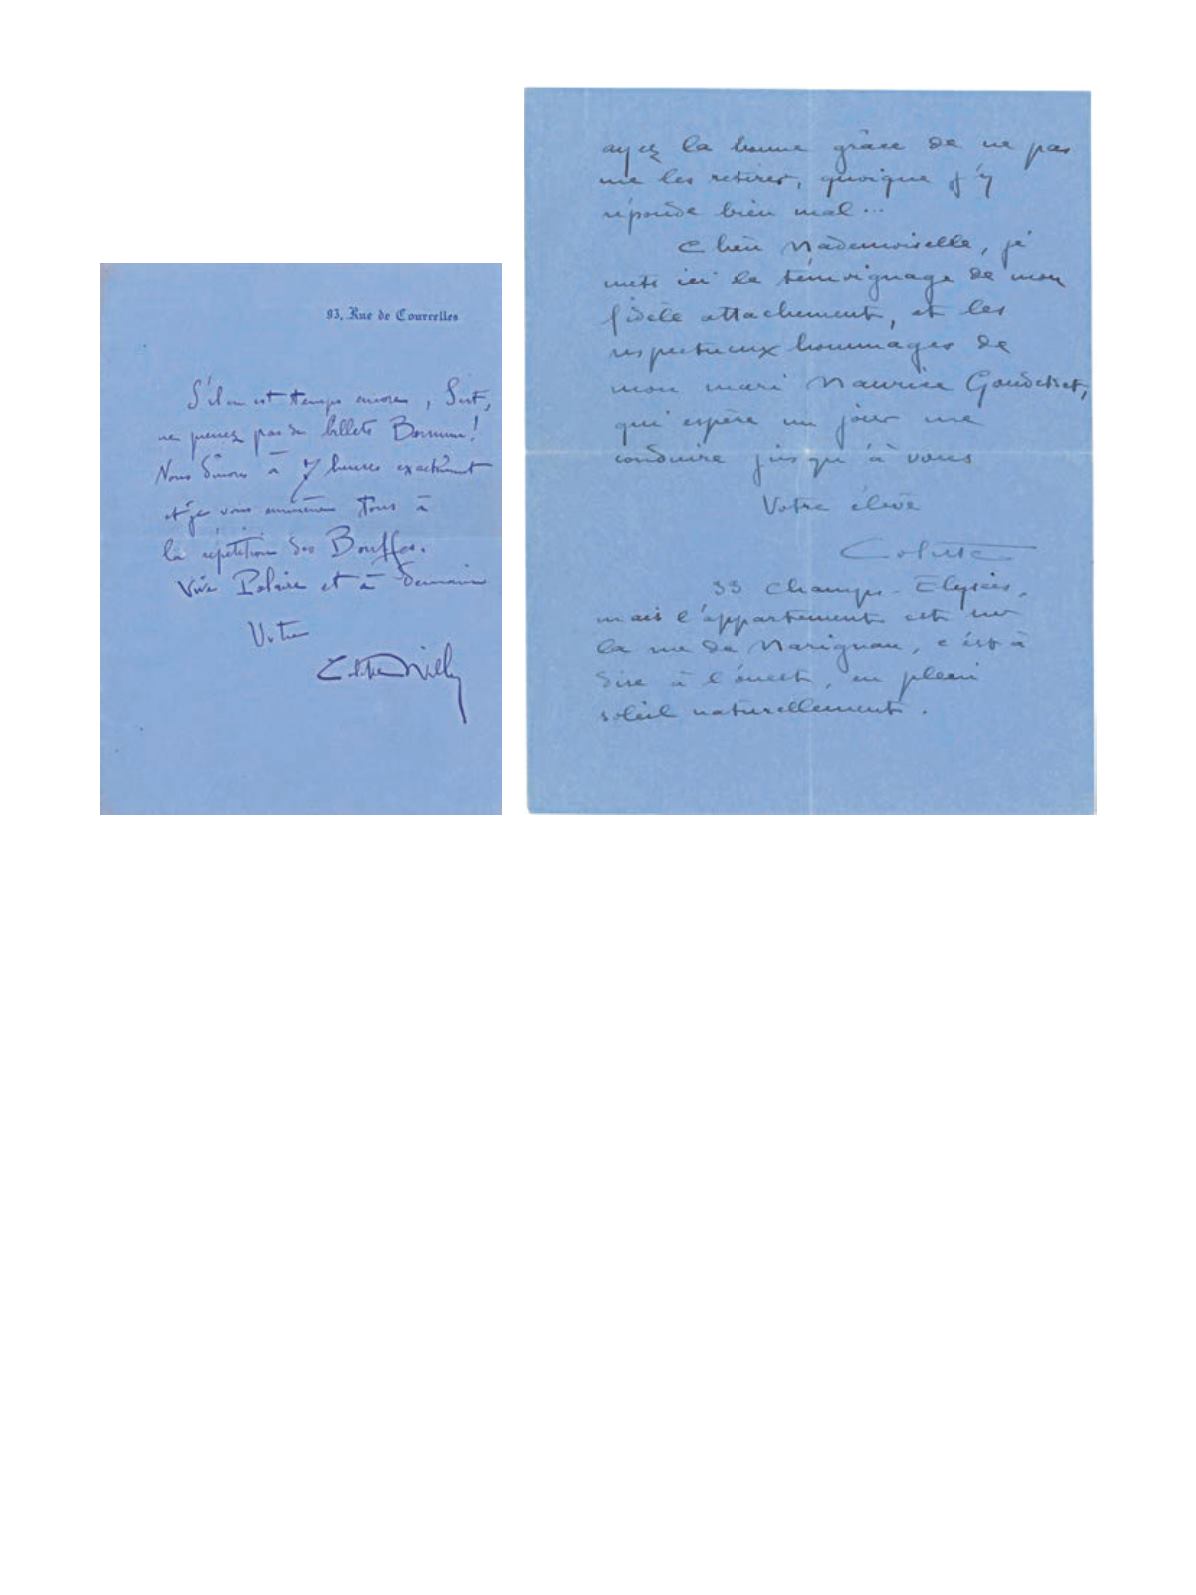 93, Rue de Courcelles
S'il en est temps encore, Sert,
ne prenez pas de billets Barnum!
Nous dînons à 7 heures exactement
et je vous emmène tous à
la répétition des Bouffes.
Vive Polaire et à demain
Votre
Colette Willy
ayez la bonne grâce de ne pas
me les retirer, quoique j'y
réponde bien mal...
Chère Mademoiselle, je
mets ici le témoignage de mon
fidèle attachement, et les
respectueux hommages de
mon mari Maurice Goudeket,
qui espère un jour me
conduire jusqu'à vous
Votre élève
Colette
33 Champs-Elysées,
mais l'appartement est sur
la rue de Marignan, c'est à
dire à l'ouest, en plein
soleil naturellement.